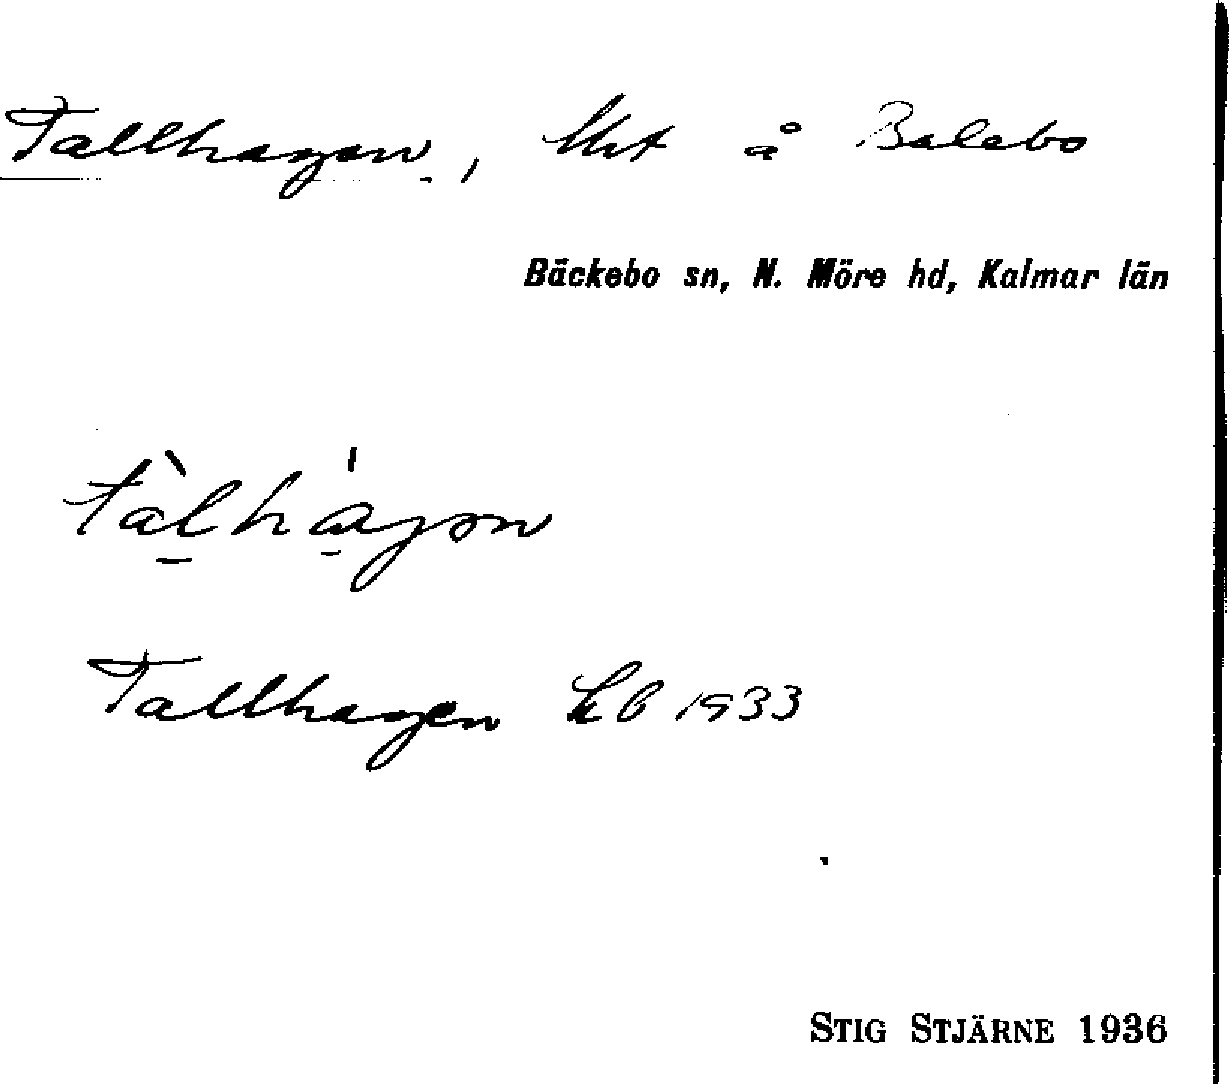 Tallhagen, lht å Balebo
Bäckebo sn, N. Möre hd, Kalmar län
tàlhágən
Tallhagen Lb 1933
STIG STJÄRNE 1936